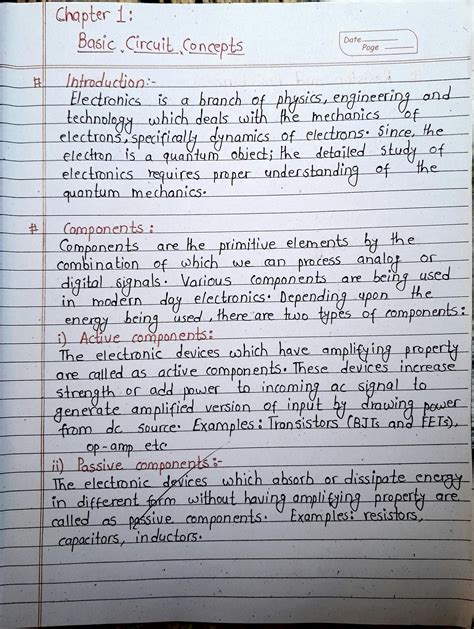 Chapter 1:
Basic Circuit Concepts
Date
Page
# Introduction:-
Electronics is a branch of physics, engineering and
technology which deals with the mechanics of
electrons, specifically dynamics of electrons. Since, the
electron is a quantum object; the detailed study of
electronics requires proper understanding of the
quantum mechanics.
# Components:
Components are the primitive elements by the
combination of which we can process analog or
digital signals. Various components are being used
in modern day electronics. Depending upon the
energy being used, there are two types of components:
i) Active components:
The electronic devices which have amplifying property
are called as active components. These devices increase
strength or add power to incoming ac signal to
generate amplified version of input by drawing power
from dc source. Examples: Transistors (BJTs and FETs),
op-amp etc.
ii) Passive components:-
The electronic devices which absorb or dissipate energy
in different form without having amplifying property are
called as passive components. Examples: resistors,
capacitors, inductors.